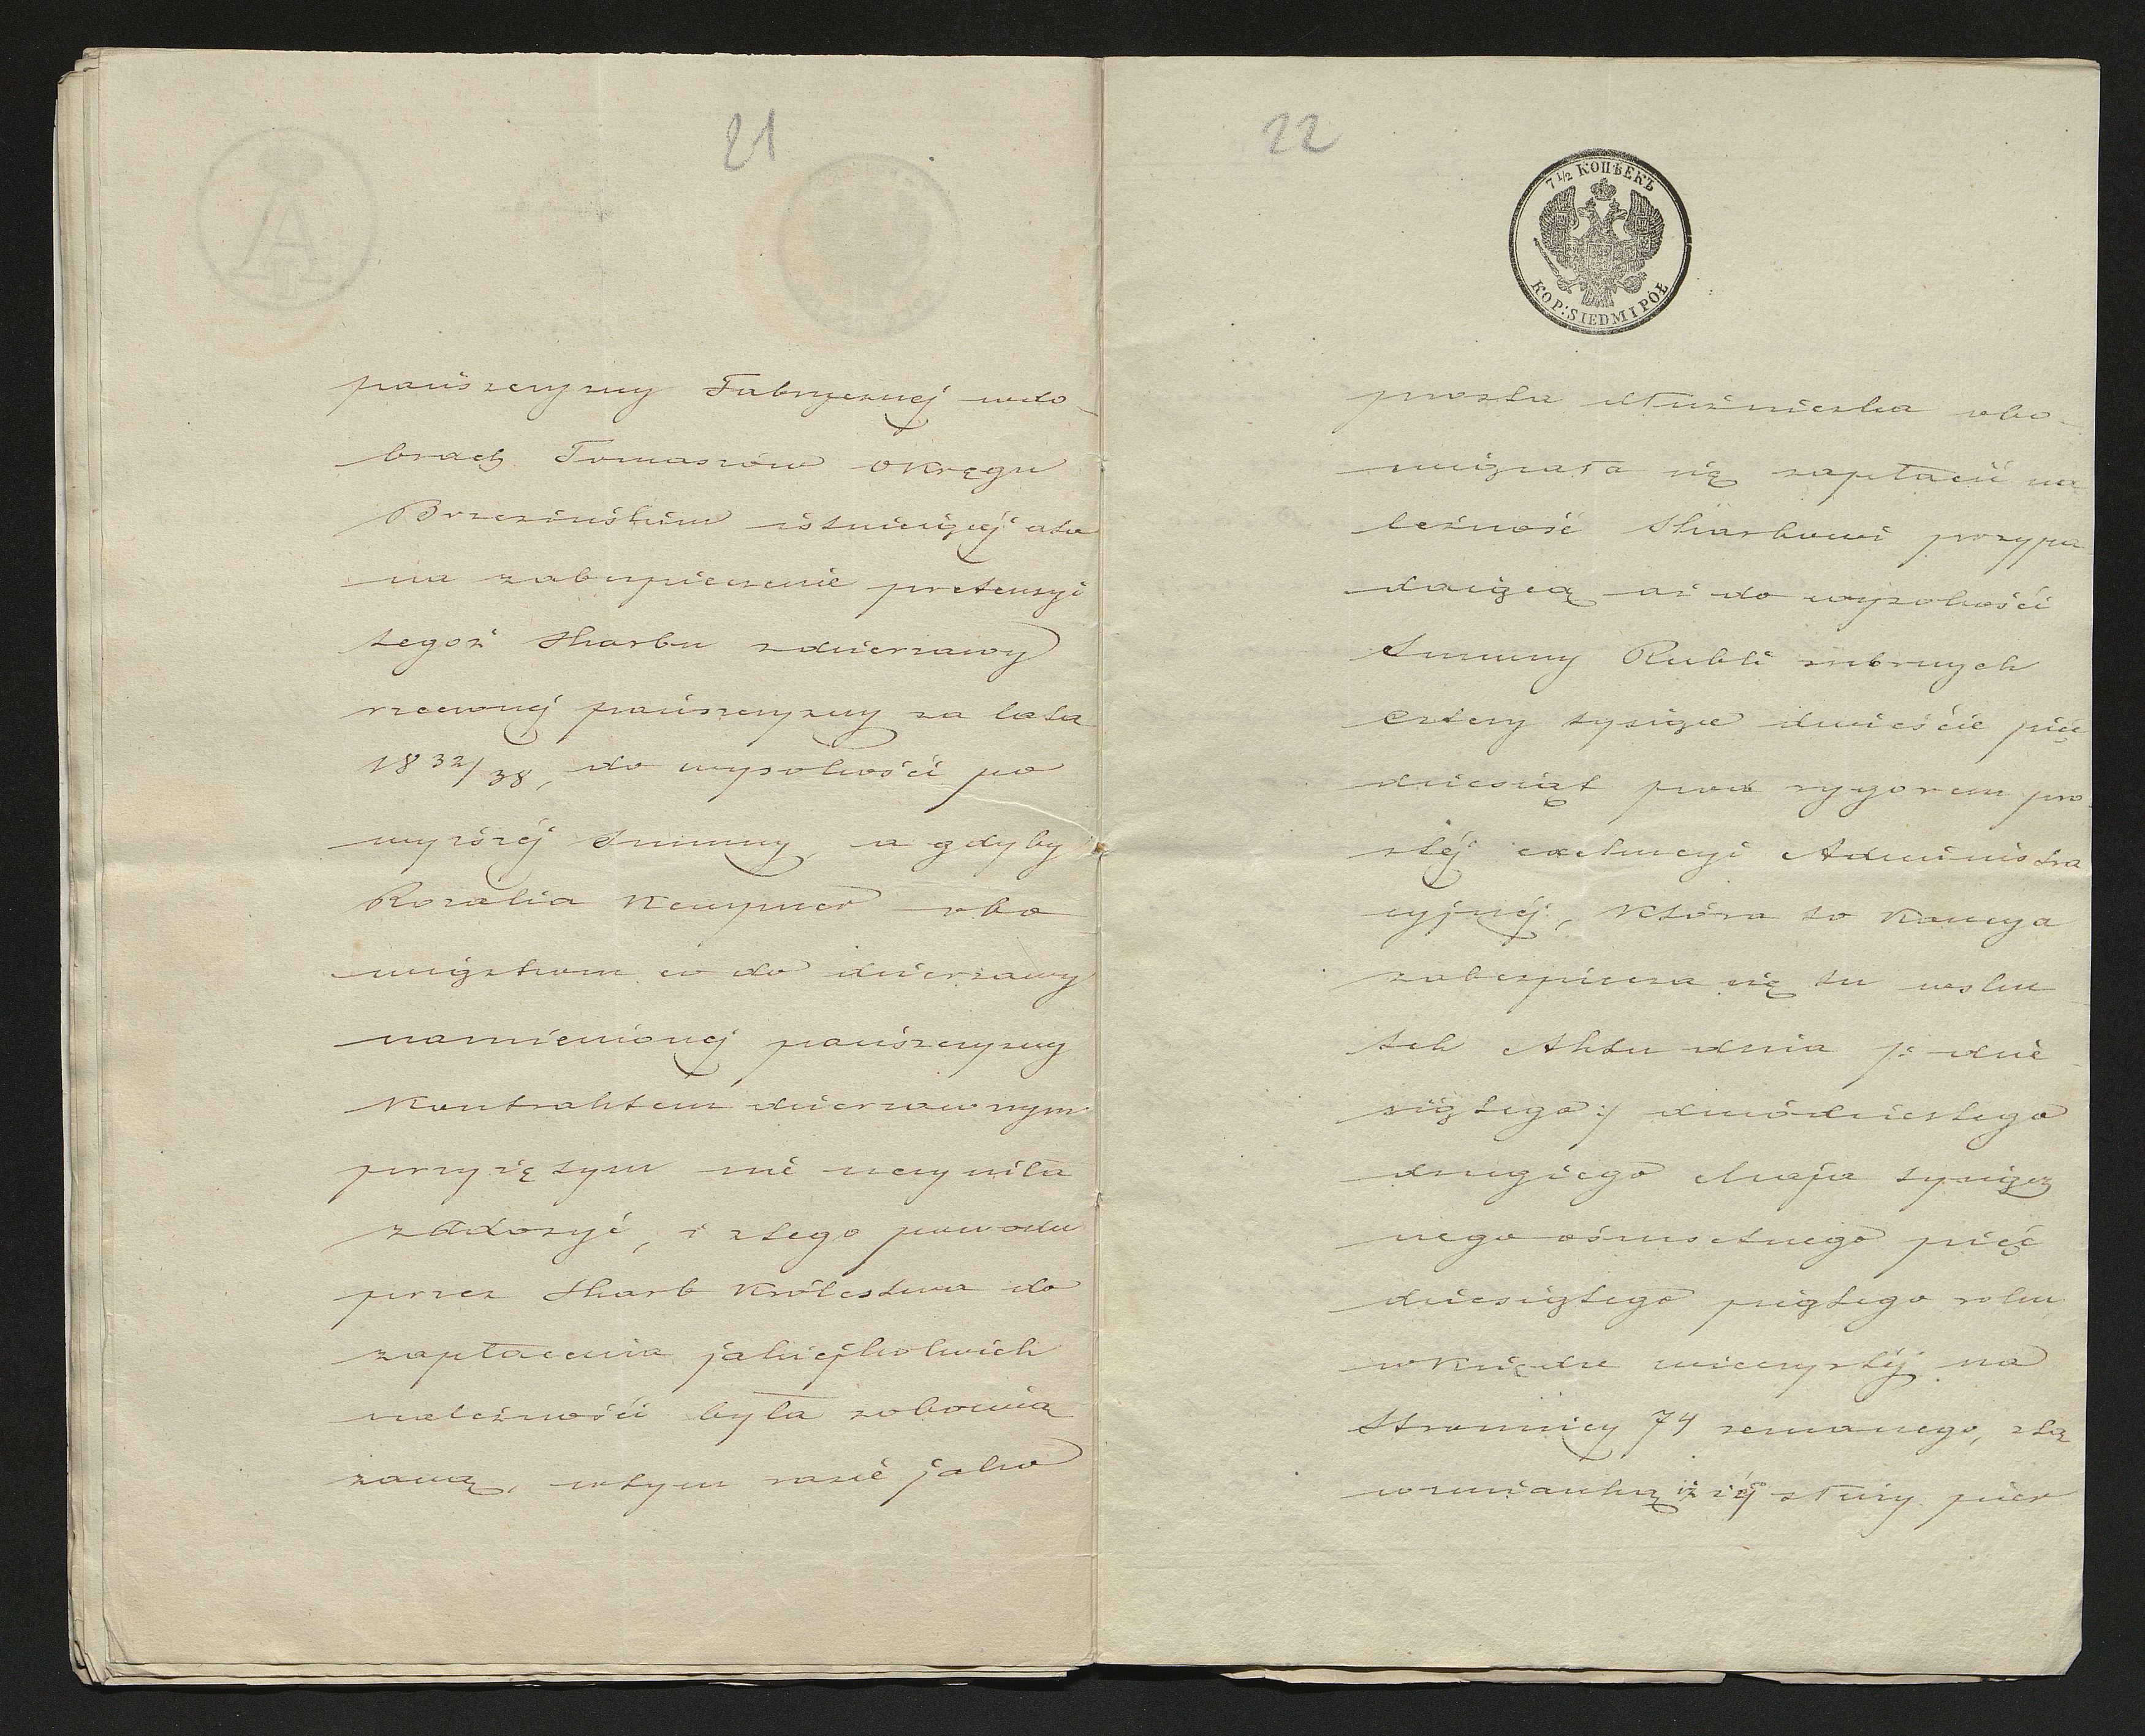 21
pańszczyzny Fabrycznej wdo-
brach Tomaszów okręgu
Brzezińskim istniejącej a to
na zabespieczenie pretensyi
tegoż Skarbu zdzierzawy
rzeczonej pańszczyzny za lata
1832/38, do wysokości po
wyższej Summy, a gdyby
Rozalia Kempner obo
wiązkom co do dzierzawy
namienionej pańszczyzny
Kontraktem dzierzawnym
przyjętym nie uczyniła
zadosyć, i ztego powodu
przez Skarb Królestwa do
zapłacenia jakiejkolwiek
należności była zobowią
zaną, wtym razie jako
22
7 1/2 КОПѢЕКЪ
KOP: SIEDM I PÓŁ
prosta dłużniczka obo-
wiązała się zapłacić na
leżność Skarbowi przypa
dającą aż do wysokości
Summy Rubli srebrnych
cztery tysiące dwieście pię
dziesiąt pod rygorem pro
stej exekucyi Administra
cyjnej, która to Kaucya
zabezpiecza się tu wsku
tek Aktu dnia /: dzie
siątego :/ dwódziestego
drugiego Maja tysiącz
nego ośmsetnego pięć
dziesiątego piątego roku
w Księdze wieczystej na
Stronnicy 74 zeznanego, z tą
wzmianką iż jej służy pier